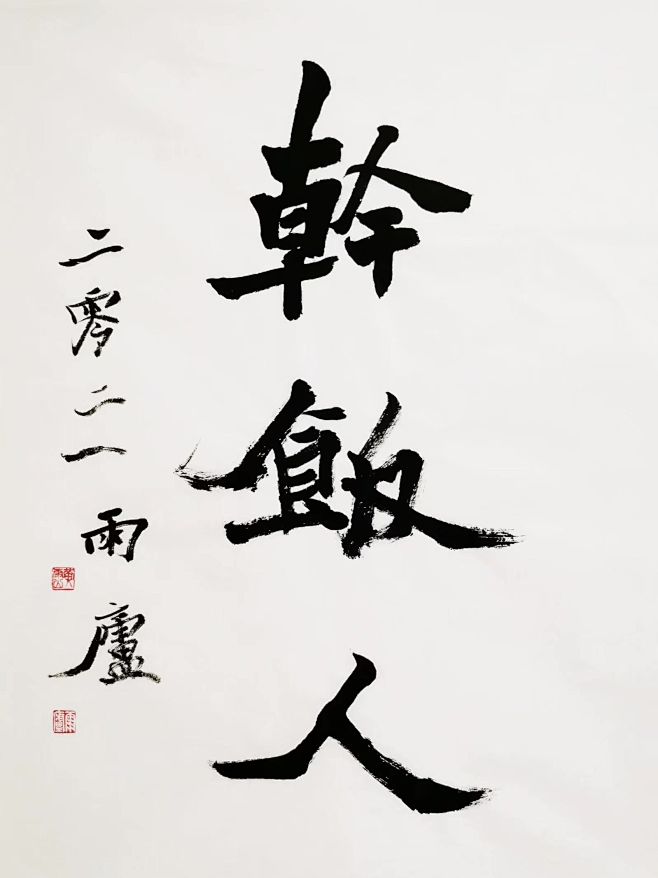 幹飯人
二零二一雨廬